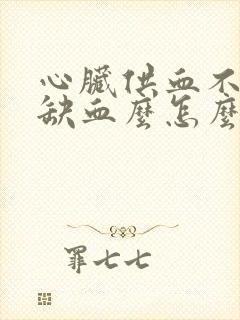 心臟供血不
缺血麼怎麼
罪七七